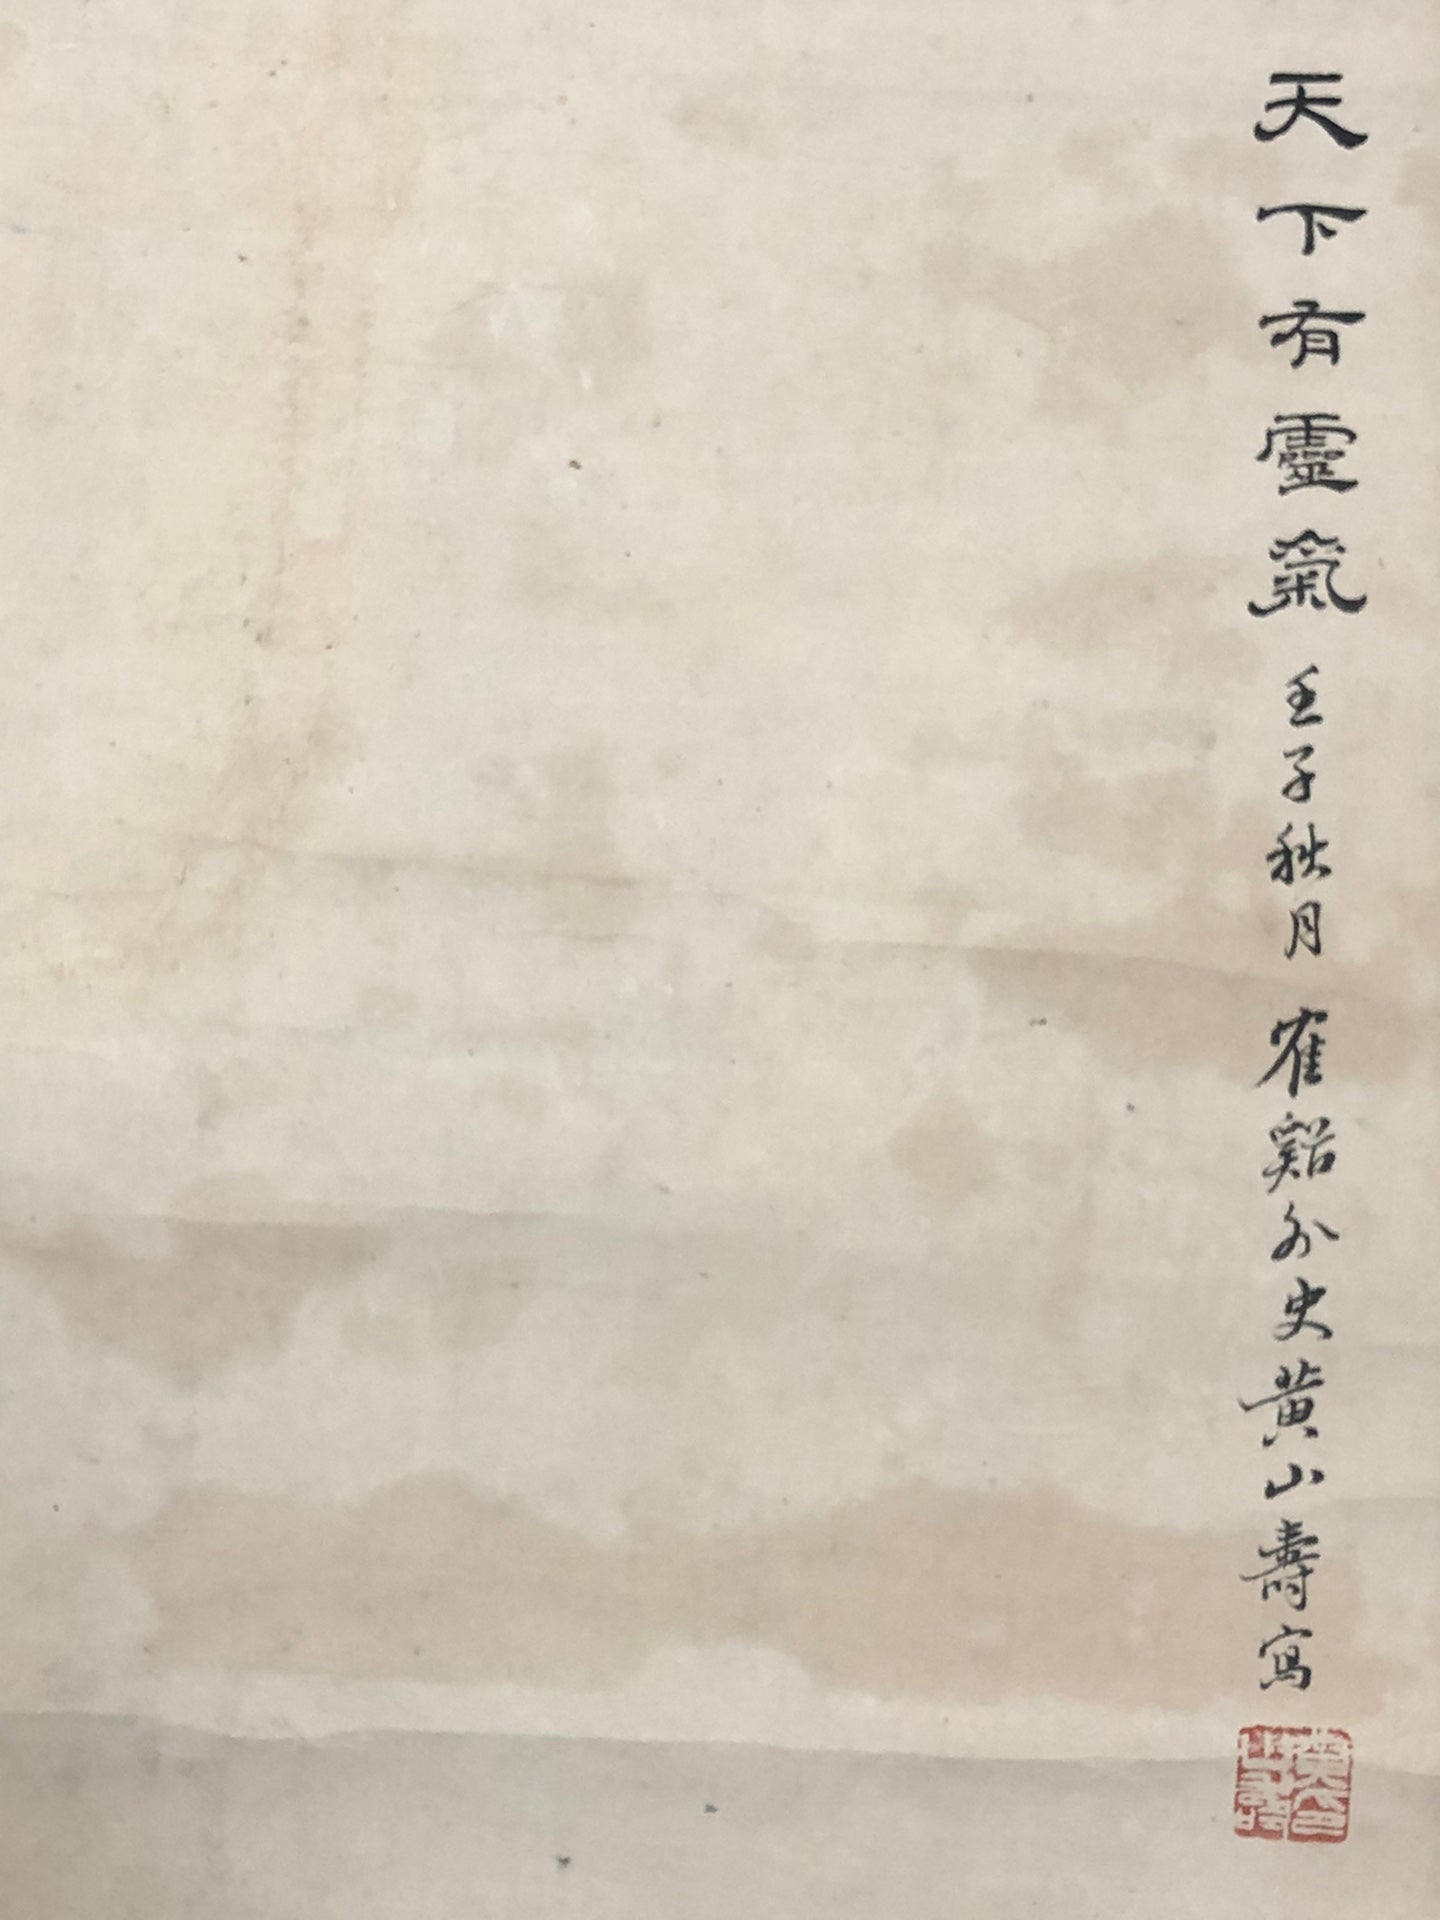 天下有靈氣壬子秋月寉谿外史黄山壽寫